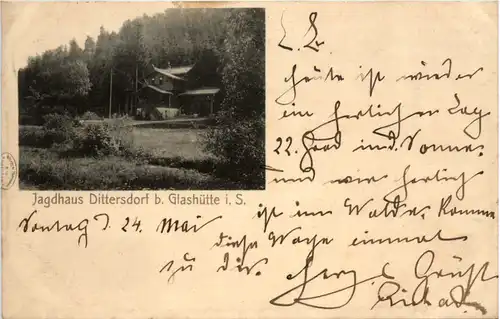 L. L.
heute ist wieder
ein herlicher Tag
22. Grad in d. Sonne.
und wie herlich
ist im Walde. Komme
diese Woche einmal
zu dir.
Herzl. Grüßt
Jagdhaus Dittersdorf b. Glashütte i. S.
Sontag d. 24. Mai